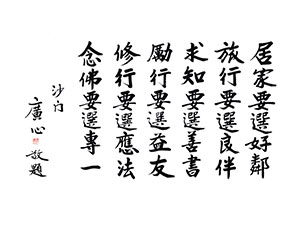 居家要選好鄰
旅行要選良伴
求知要選善書
勵行要選益友
修行要選應法
念佛要選專一
沙门
廣心敬題